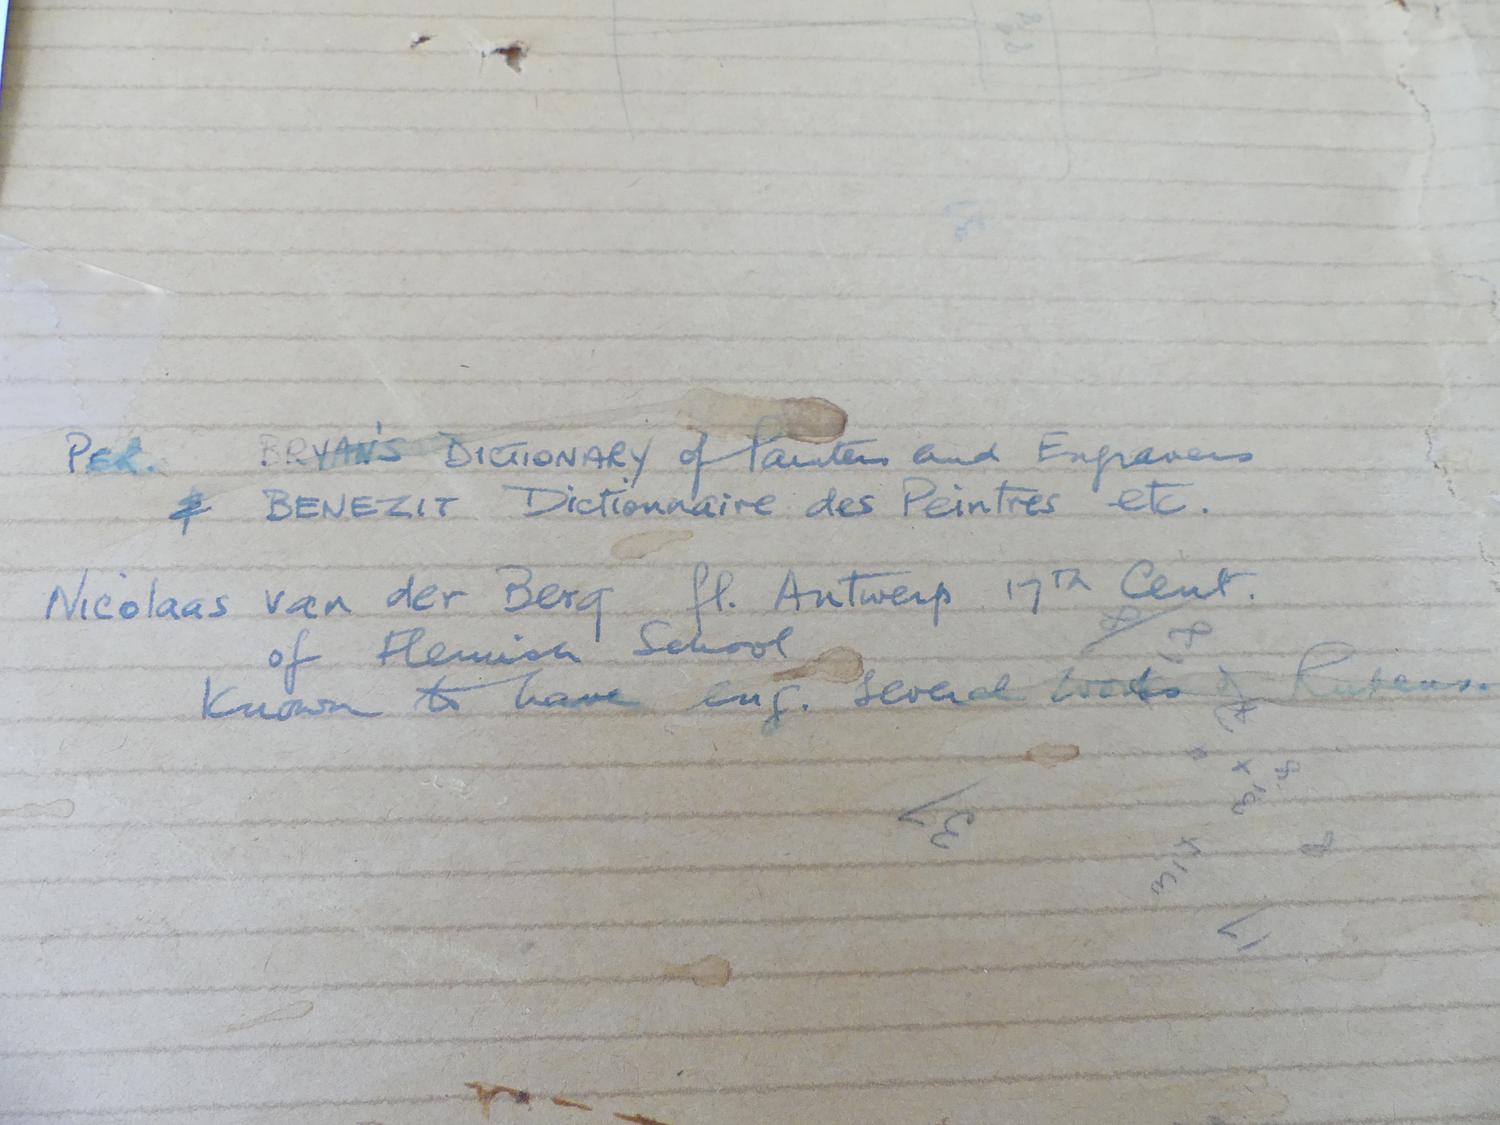 PER. BRYAN'S DICTIONARY of Painters and Engravers
& BENEZIT Dictionnaire des Peintres etc.
Nicolaas van der Berg fl. Antwerp 17th Cent.
of Flemish School
Known to have eng. several works of Rubens.